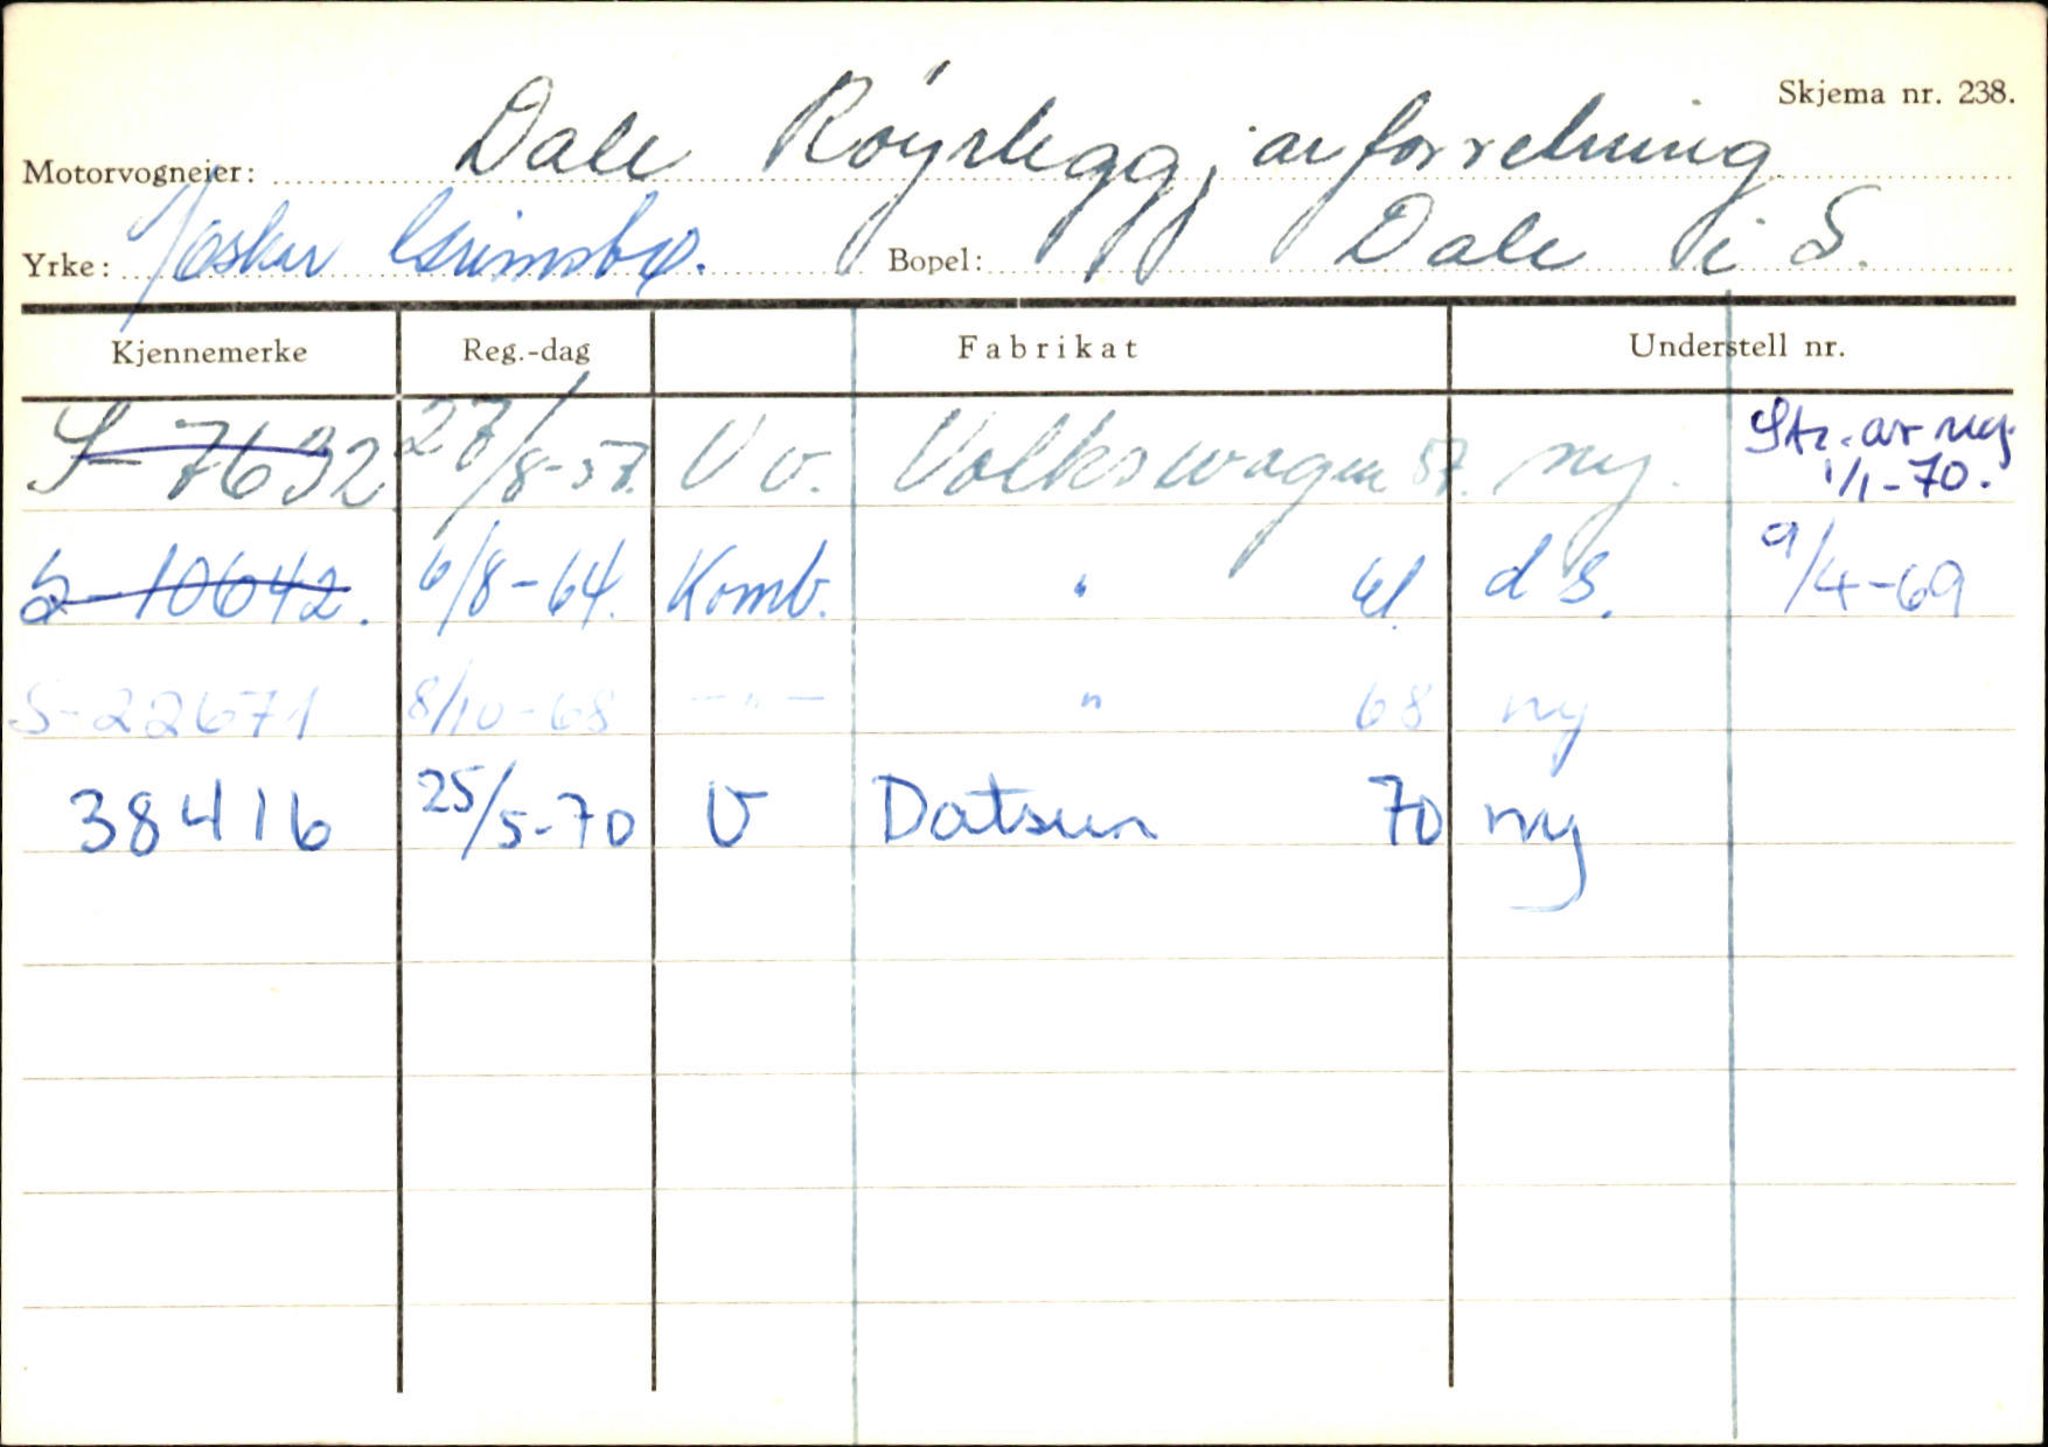 Skjema nr. 238.
Motorvogneier: Dale Røyrleggjarforretning
Yrke: v/Oskar Grimsbø. Bopel: Dale i S.
Kjennemerke Reg.-dag Fabrikat Understell nr.
S-7632 27/8-57. V v. Volkswagen 57. ny. Str. av reg. 1/1-70.
S-10642. 6/8-64. Komb. " 61. d S. 9/4-69
S-22671 8/10-68 -"- " 68 ny
38416 25/5-70 V Datsun 70 ny